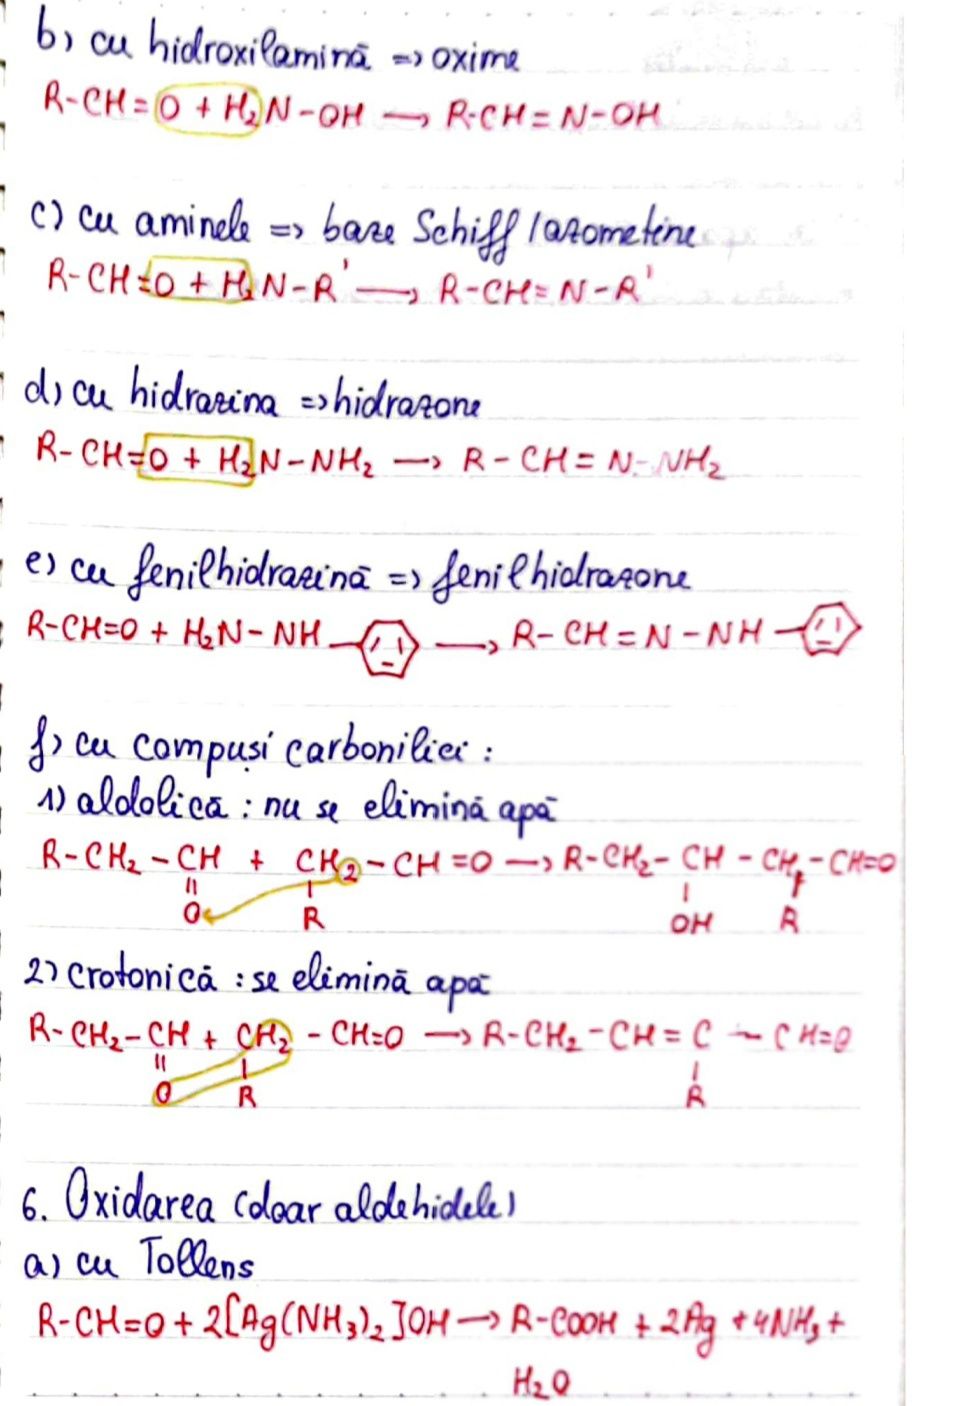 b) cu hidroxilamină => oxime
R-CH=O + H₂N-OH → R-CH=N-OH
c) cu aminele => baze Schiff/azometine
R-CH=O + H₂N-R' → R-CH=N-R'
d) cu hidrazina => hidrazone
R-CH=O + H₂N-NH₂ → R-CH=N-NH₂
e) cu fenilhidrazină => fenilhidrazone
R-CH=O + H₂N-NH- → R-CH=N-NH-
f) cu compuși carbonilici:
1) aldolică: nu se elimină apă
R-CH₂-CH + CH₂-CH=O → R-CH₂-CH-CH-CH=O
O R OH R
2) crotonică: se elimină apă
R-CH₂-CH + CH₂-CH=O → R-CH₂-CH=C-CH=O
O R R
6. Oxidarea (doar aldehidele)
a) cu Tollens
R-CH=O + 2[Ag(NH₃)₂]OH → R-COOH + 2Ag + 4NH₃ +
H₂O